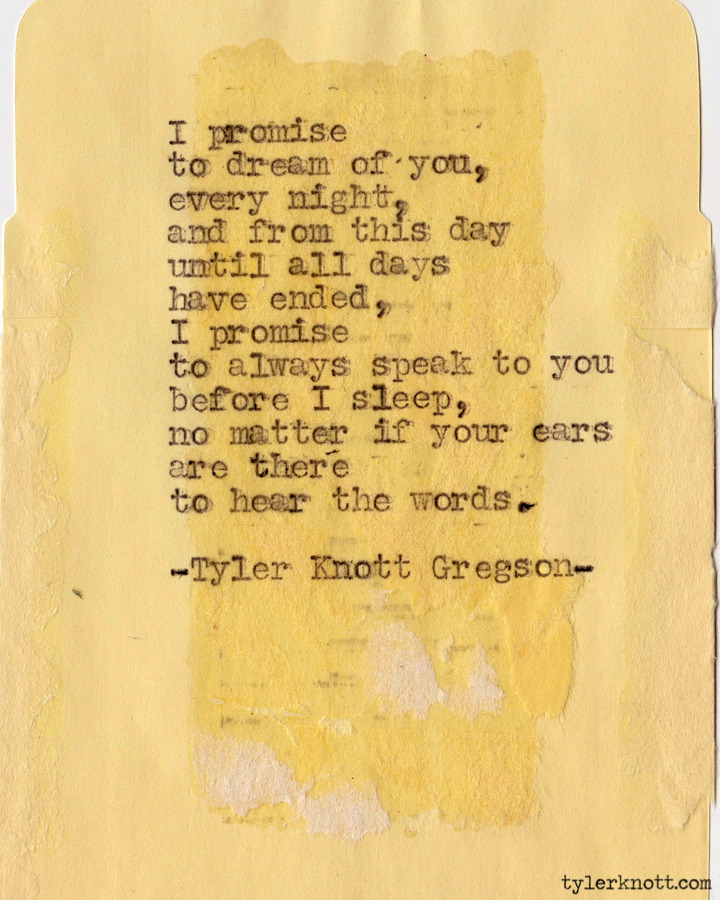 I promise
to dream of you,
every night,
and from this day
until all days
have ended,
I promise
to always speak to you
before I sleep,
no matter if your ears
are there
to hear the words.
-Tyler Knott Gregson-
tylerknott.com